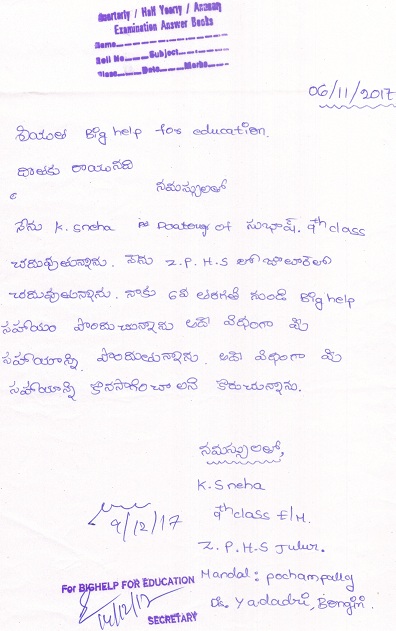 Quarterly / Half Yearly / Annual
Examination Answer Books
Name
Roll No Subject
Class Date Marks
06/11/2017
Big help for education.
దాతకు రాయునది
నమస్సులతో
నేను K. Sneha of సుభాష్. 9th class
చదువుతున్నాను. నేను Z.P.H.S లో జూలూర్‌లో
చదువుతున్నాను. నాకు 6వ తరగతి నుండి Big help
సహాయం పొందుచున్నాను అదే విధంగా మీ
సహాయాన్ని పొందుతున్నాను. అదే విధంగా మీ
సహాయాన్ని కొనసాగించాలని కోరుచున్నాను.
నమస్సులతో,
K. Sneha
9th class E/M.
Z.P.H.S Julur.
Mandal: pochampally
Ds. Yadadri, Bongiri.
9/12/17
For BIGHELP FOR EDUCATION
14/12/17
SECRETARY